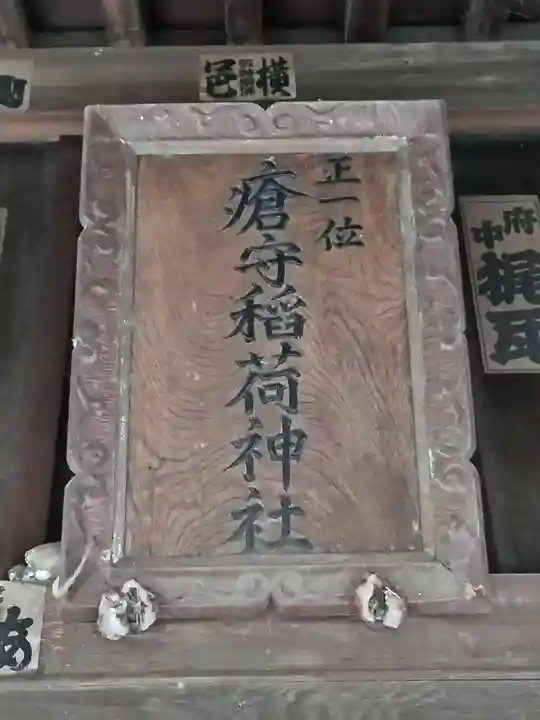 正一位
瘡守稲荷神社
横
邑
府
中
梶
瓦